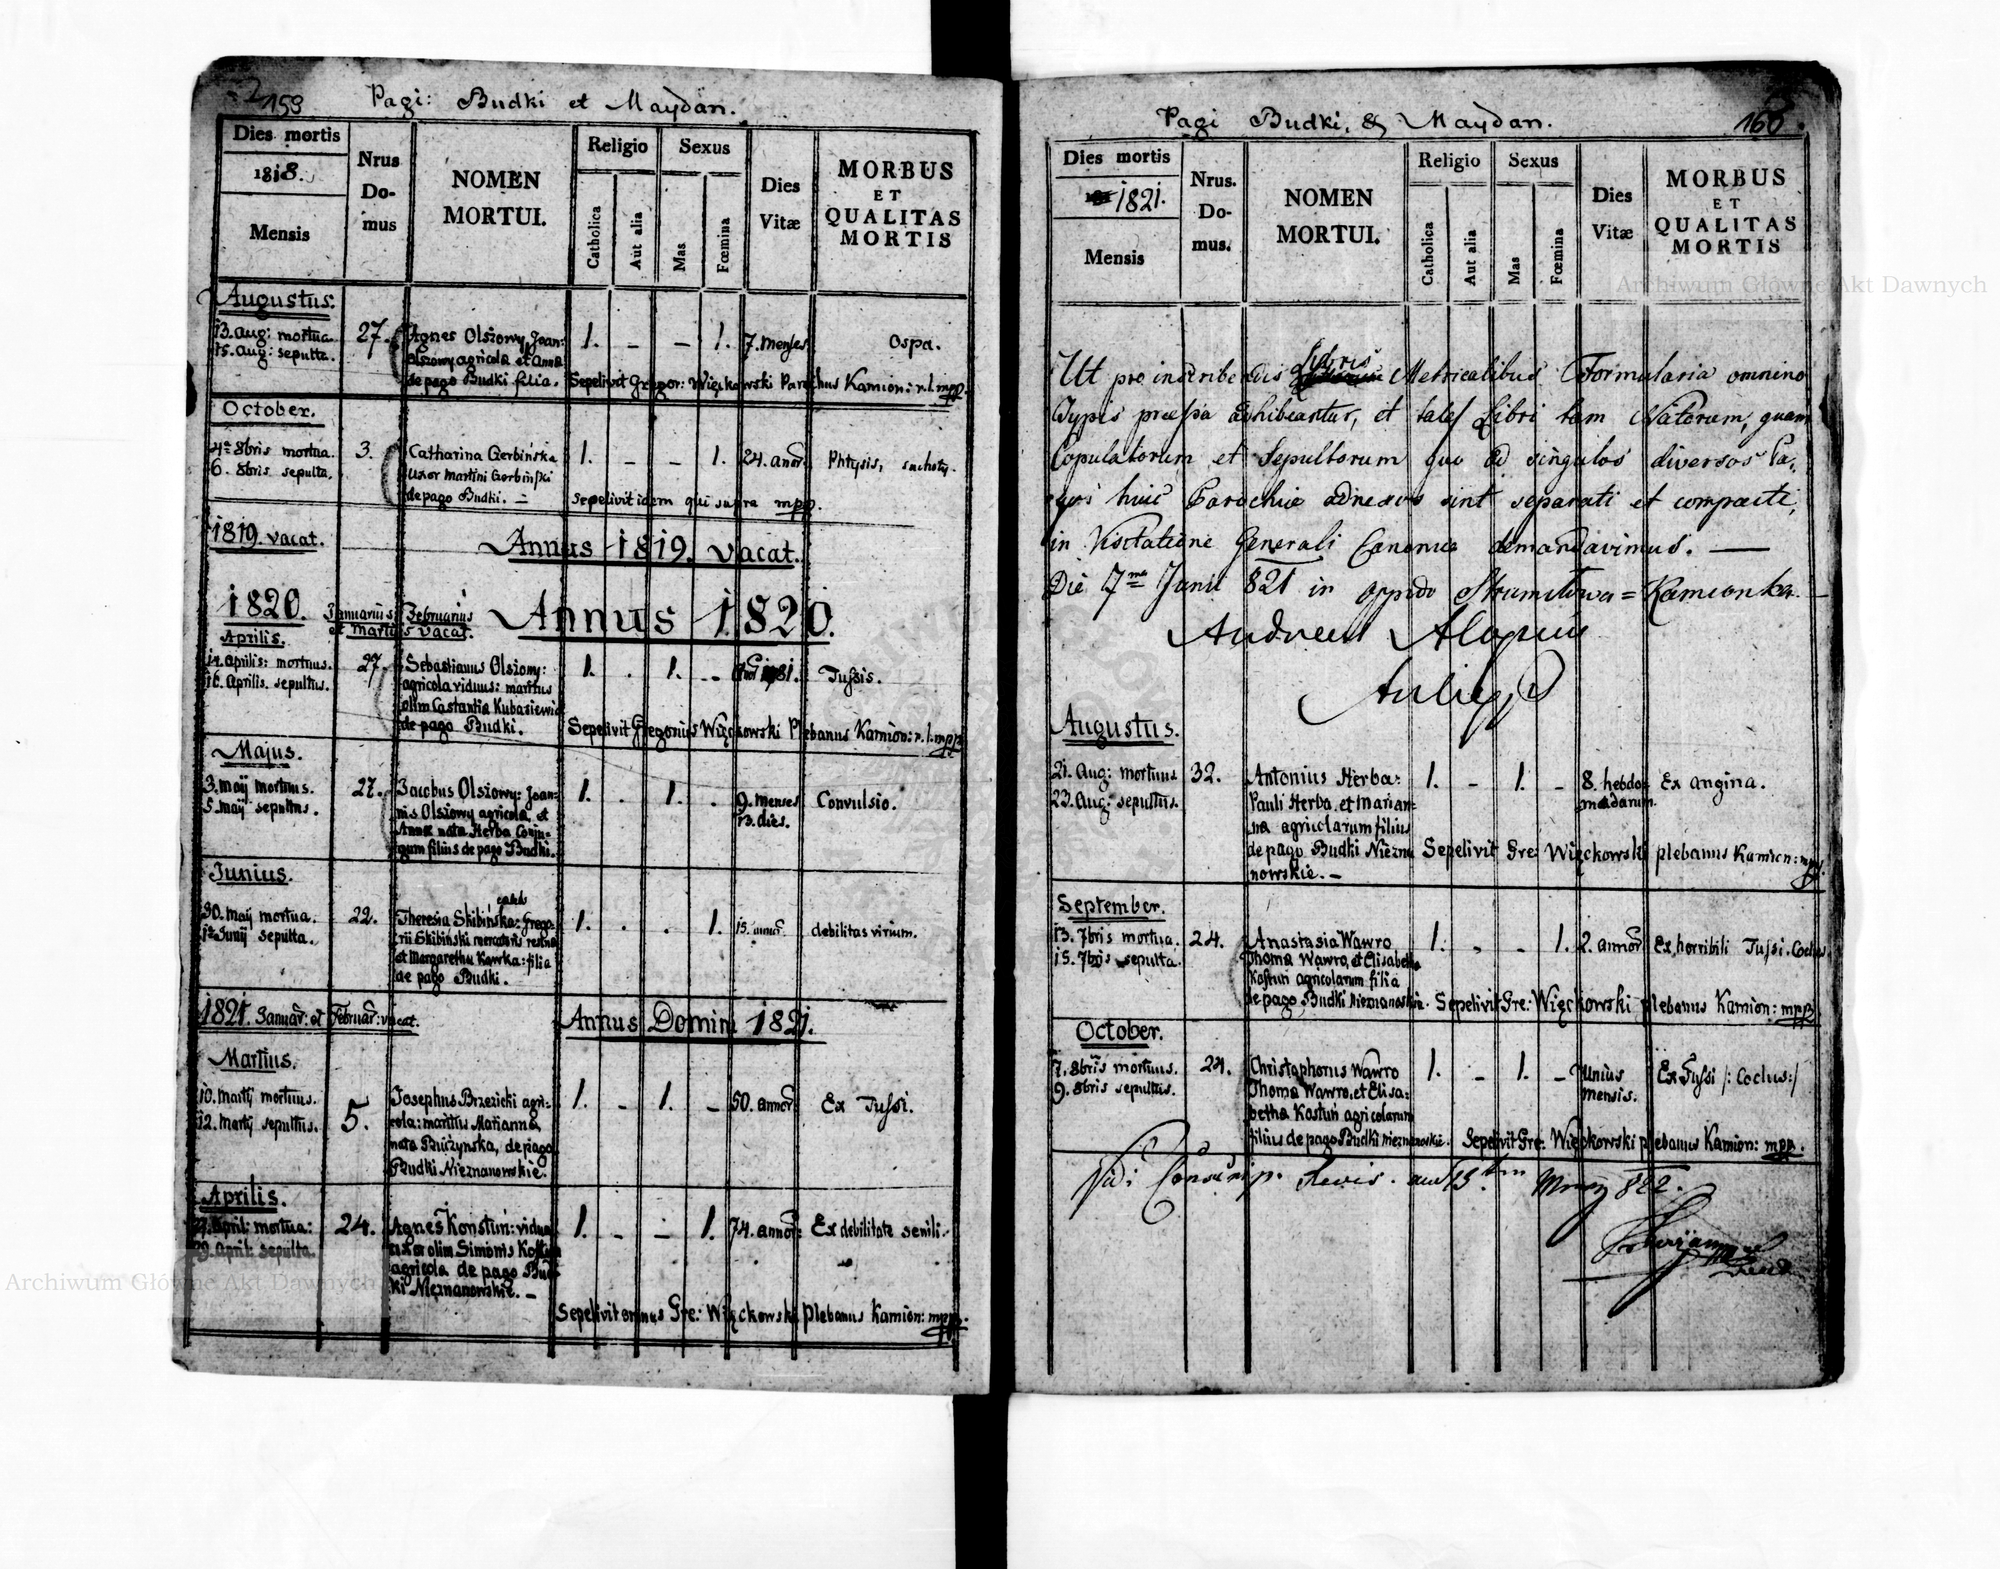 159
Pagi: Budki et Maydan.
Dies mortis
1818.
Mensis
Nrus
Do-
mus
NOMEN
MORTUI.
Religio
Catholica
Aut alia
Sexus
Mas
Fœmina
Dies
Vitæ
MORBUS
ET
QUALITAS
MORTIS
Augustus:
13. Aug: mortua. 27. Agnes Olszowy, Joan: 1. - - 1. 7. menses Ospa.
15. Aug: sepulta. Olszowy agricola et Anna
de pago Budki filia. Sepelivit Gregor: Więckowski Parochus Kamion: r. l. mpp.
October.
4ta 8bris mortua. 3. Catharina Gerbińska 1. - - 1. 24. anor. Phtysis, suchoty.
6. 8bris sepulta. uxor Martini Gerbiński
de pago Budki. - sepelivit idem qui supra mpp.
1819. vacat. Annus 1819. vacat.
1820. Januarius Februarius Annus 1820.
et Martius vacat.
Aprilis.
14. Aprilis: mortuus. 27. Sebastianus Olszowy: 1. . 1. - 81. Tussis.
16. Aprilis. sepultus. agricola viduus: maritus
olim Castantia Kubasiewic
de pago Budki. Sepelivit Gregorius Więckowski Plebanus Kamion: r. l. mpp
Majus.
3. maij mortuus. 27. Jacobus Olszowy: Joan- 1. . 1. . 9. menses Convulsio.
5. maij sepultus. nis Olszowy agricola, et 13. dies.
Anna nata Herba Conju-
gum filius de pago Budki.
Junius.
30. maij mortua. 22. Theresia Skibińska: Grego- 1. . . 1. 15. annor. debilitas virium.
1ma Junij sepulta. rii Skibiński
et Margaretha Kawka: filia
de pago Budki.
1821. Januar: et Februar: vacat. Annus Domini 1821.
Martius.
10. Martij mortuus. 5. Josephus Brzezicki agri- 1. - 1. - 50. annor: Ex Tussi.
12. Martij sepultus. cola: maritus Marianna
nata Buczynska, de pago
Budki Nieznanowskie.
Aprilis.
27. April: mortua: 24. Agnes Konstun: vidua 1. - - 1. 74. annor: Ex debilitate senili.
29. April: sepulta. uxor olim Simonis Kostun
agricola de pago Bud-
ki Nieznanowskie. -
Sepelivit omnes Gre: Więckowski Plebanus Kamion: mpp.
160.
Pagi Budki, & Maydan.
Dies mortis
1821.
Mensis
Nrus.
Do-
mus.
NOMEN
MORTUI.
Religio
Catholica
Aut alia
Sexus
Mas
Fœmina
Dies
Vitæ
MORBUS
ET
QUALITAS
MORTIS
Libris
Ut pro inscribendis Metricalibus Formularia omnino
Typis pressa adhibeantur, et tales Libri tam Natorum, quam
Copulatorum et Sepultorum quo ad singulos diversos Pa-
gos huic Parochiæ adnexos sint separati et compacti,
in Visitatione Generali Canonica demandavimus. —
Die 7ma Junii 821 in oppido Strumilowa = Kamionka.
Andreas Aloysius
Augustus.
21. Aug: mortuus 32. Antonius Herba: 1. - 1. - 8. hebdo- Ex angina.
23. Aug: sepultus. Pauli Herba, et Marian- madarum.
na agricolarum filius
de pago Budki Niezna Sepelivit Gre: Więckowski plebanus Kamion: mpp.
nowskie. -
September.
13. 7bris mortua. 24. Anastasia Wawro 1. - - 1. 2. annor Ex horribili Tussi. Coclus
15. 7bris sepulta. Thoma Wawro, et Elisabetha
Kostun agricolarum filia
de pago Budki Nieznanoskie. Sepelivit Gre: Więckowski plebanus Kamion: mpp
October.
7. 8bris mortuus. 24. Christophorus Wawro 1. - 1. - unius Ex Tussi /: Coclus :/
9. 8bris sepultus. Thoma Wawro, et Elisa- mensis.
betha Kostun agricolarum
filius de pago Budki Nieznanoskie. Sepelivit Gre: Więckowski plebanus Kamion: mpp.
Vidi 822.
Archiwum Główne Akt Dawnych
Archiwum Główne Akt Dawnych